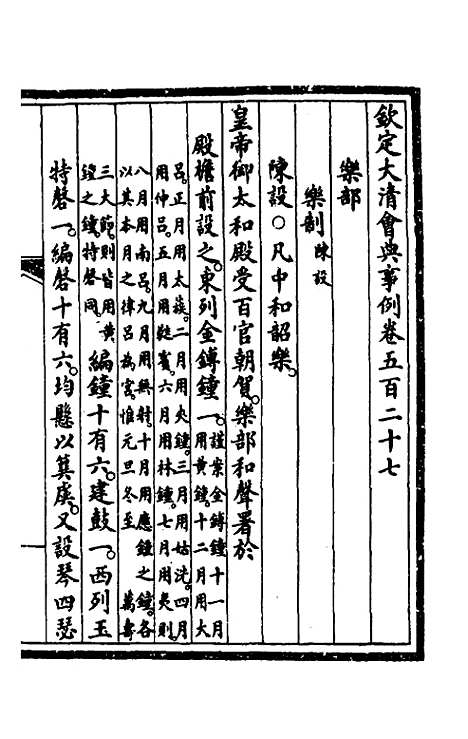 欽定大清會典事例卷五百二十七
樂部
樂制陳設
陳設〇凡中和韶樂。
皇帝御太和殿受百官朝賀。樂部和聲署於
殿檐前設之。東列金鎛鐘一。謹案金鎛鐘十一月用黃鐘。十二月用大
呂。正月用太蔟。二月用夾鐘。三月用姑洗。四月用仲呂。五月用蕤賓。六月用林鐘。七月用夷則。
八月用南呂。九月用無射。十月用應鐘之鐘。各以其本月之律呂為宮。惟元旦冬至 萬壽
三大節。則皆用黃鐘之鐘。特磬同。編鐘十有六。建鼓一。西列玉
特磬一。編磬十有六。均懸以簨虡。又設琴四瑟